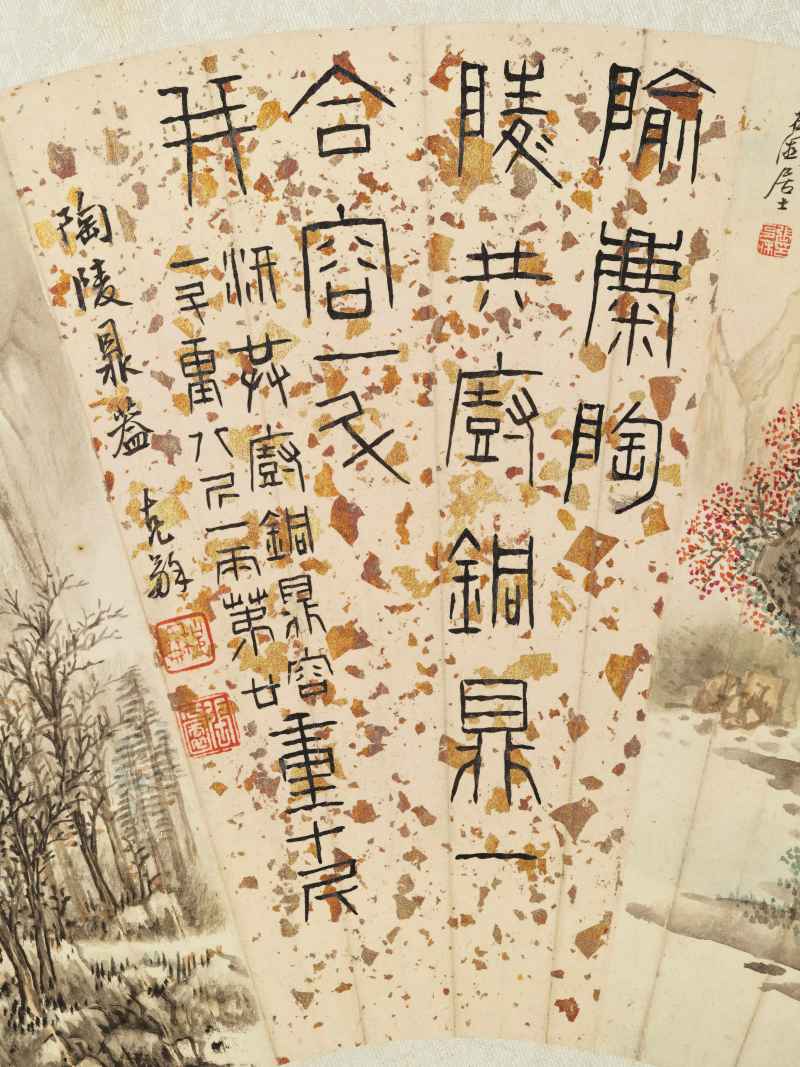 隃麋陶
陵共廚銅鼎一
合容一斗
并
汧共廚銅鼎容
一斗重八斤一兩第廿
重十斤
陶陵鼎蓋 克龢
居士